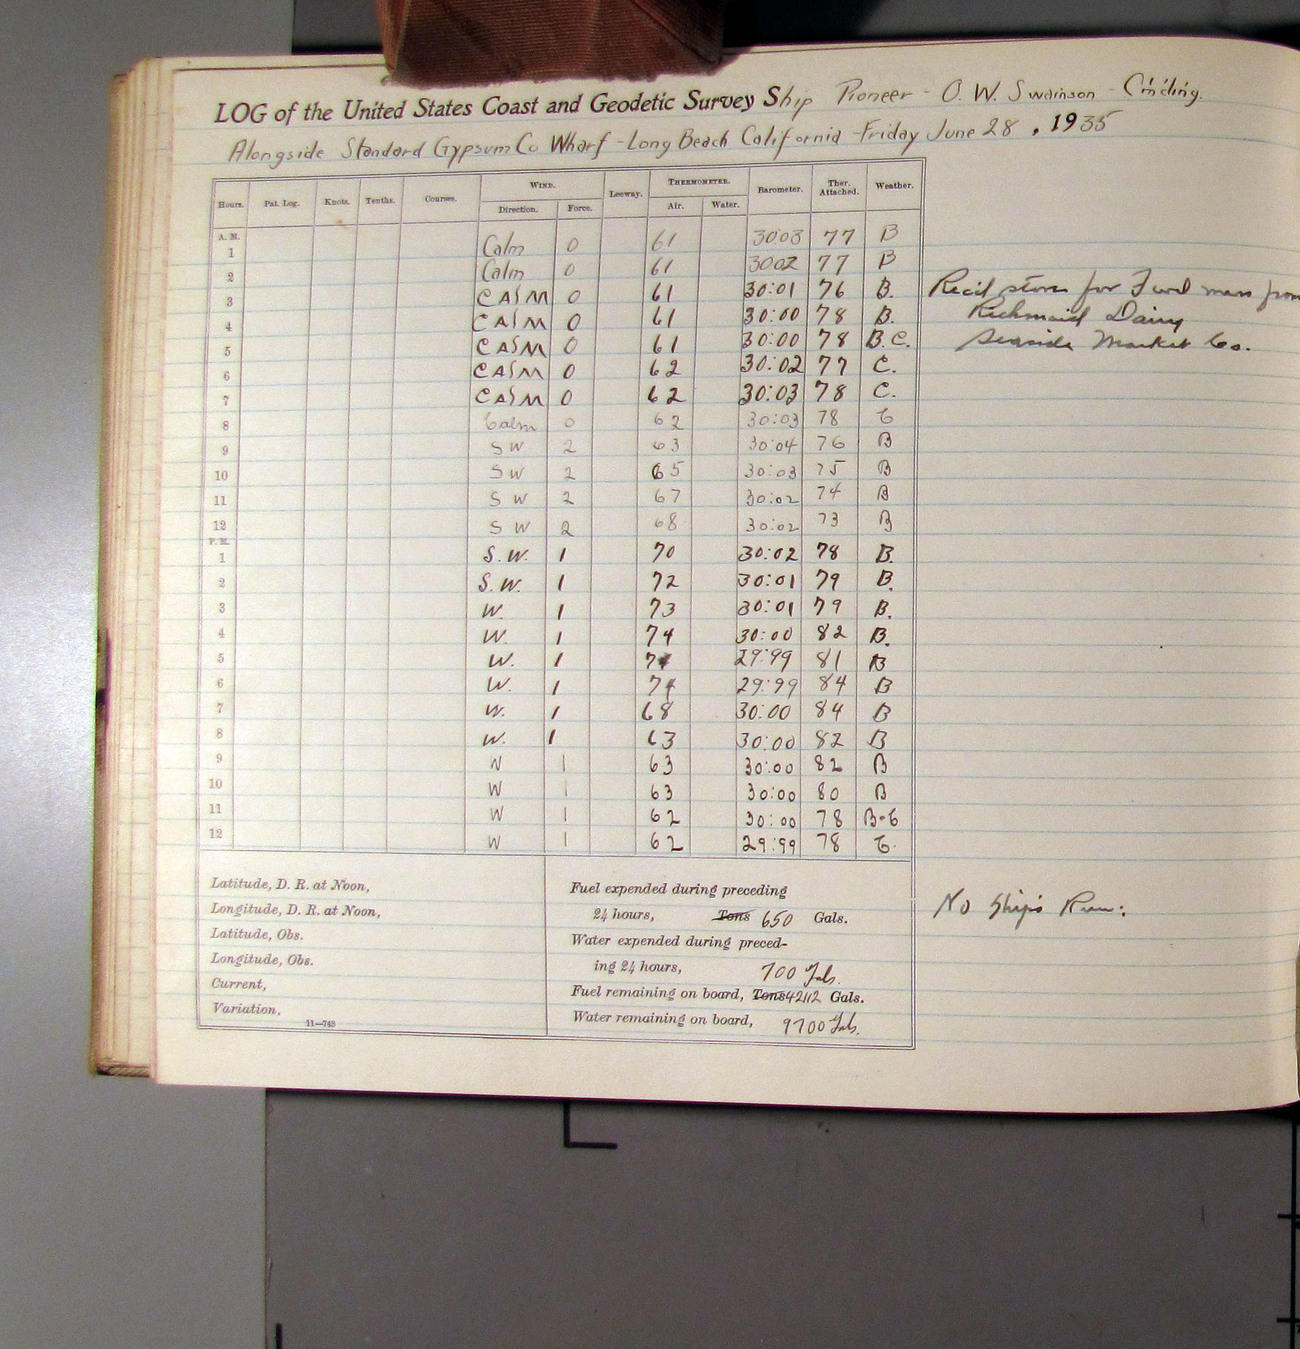 LOG of the United States Coast and Geodetic Survey Ship Pioneer - O. W. Swainson - Cm'd'ing.
Alongside Standard Gypsum Co Wharf - Long Beach California - Friday June 28, 1935
Hours. Pat. Log. Knots. Tenths. Courses. WIND. Direction. Force. Leeway. THERMOMETER. Air. Water. Barometer. Ther. Attached. Weather.
A. M.
1 Calm 0 61 30:03 77 B
2 Calm 0 61 3002 77 B
3 CAlM 0 61 30:01 76 B.
4 CAlM 0 61 30:00 78 B.
5 CAlM 0 61 30:00 78 B.C.
6 CAlM 0 62 30:02 77 C.
7 CAlM 0 62 30:03 78 C.
8 Calm 0 62 30:03 78 C
9 SW 2 63 30:04 76 B
10 SW 2 65 30:03 75 B
11 SW 2 67 30:02 74 B
12 SW 2 68 30:02 73 B
P. M.
1 S.W. 1 70 30:02 78 B.
2 S.W. 1 72 30:01 79 B.
3 W. 1 73 30:01 79 B.
4 W. 1 74 30:00 82 B.
5 W. 1 29:99 81 B
6 W. 1 74 29:99 84 B
7 W. 1 68 30:00 84 B
8 W. 1 63 30:00 82 B
9 W 1 63 30:00 82 B
10 W 1 63 30:00 80 B
11 W 1 62 30:00 78 B-C
12 W 1 62 29:99 78 C.
Rec'd stores for Fwd mess from
Richmaid Dairy
Seaside Market Co.
Latitude, D. R. at Noon,
Longitude, D. R. at Noon,
Latitude, Obs.
Longitude, Obs.
Current,
Variation,
11—743
Fuel expended during preceding
24 hours, Tons 650 Gals.
Water expended during preced-
ing 24 hours, 700 Gals.
Fuel remaining on board, Tons 42112 Gals.
Water remaining on board, 9700 Gals.
No Ship's Run: